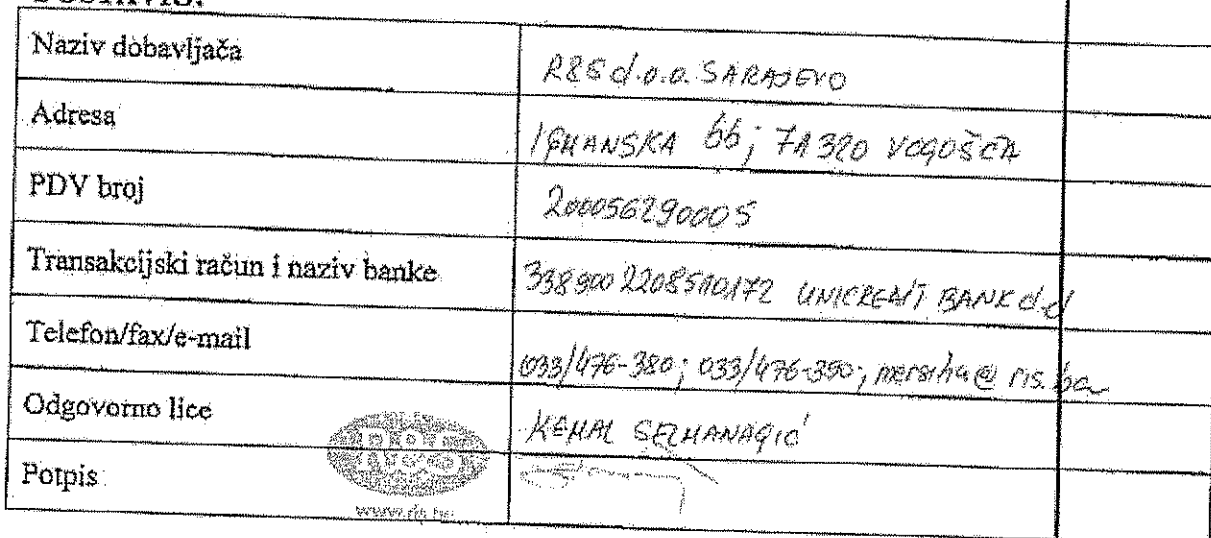 Naziv dobavljača R&S d.o.o. SARAJEVO
Adresa IGMANSKA 66; 71320 VOGOŠĆA
PDV broj 200056290005
Transakcijski račun i naziv banke UNICREDIT BANK d.d
Telefon/fax/e-mail 033/476-380; 033/476-390; mersiha@ris.ba
Odgovorno lice KEMAL SELMANAGIĆ
R&S
Potpis
www.ris.ba